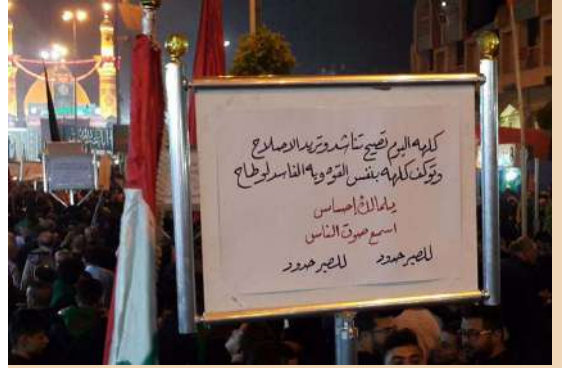 كلهه اليوم تصيح تناشد وتريد الاصلاح
وتوكف كلهه بنفس القوه ويه الفاسد لو طاح
يلمالك إحساس
اسمع صوت الناس
للصبر حدود للصبر حدود